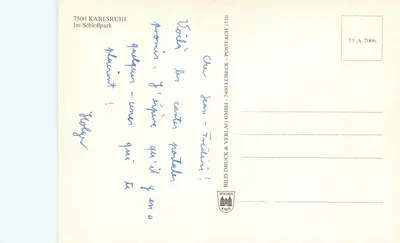 7500 KARLSRUHE
Im Schloßpark
Cher Jean-Frédéric !
Voilà les cartes postales
promis. J'espère qu'il y en a
quelques-unes qui te
plairont !
Holger
BILD-DRUCK & VERLAG GMBH · 2400 LÜBECK 1 · POSTFACH 1710
75 A 7006